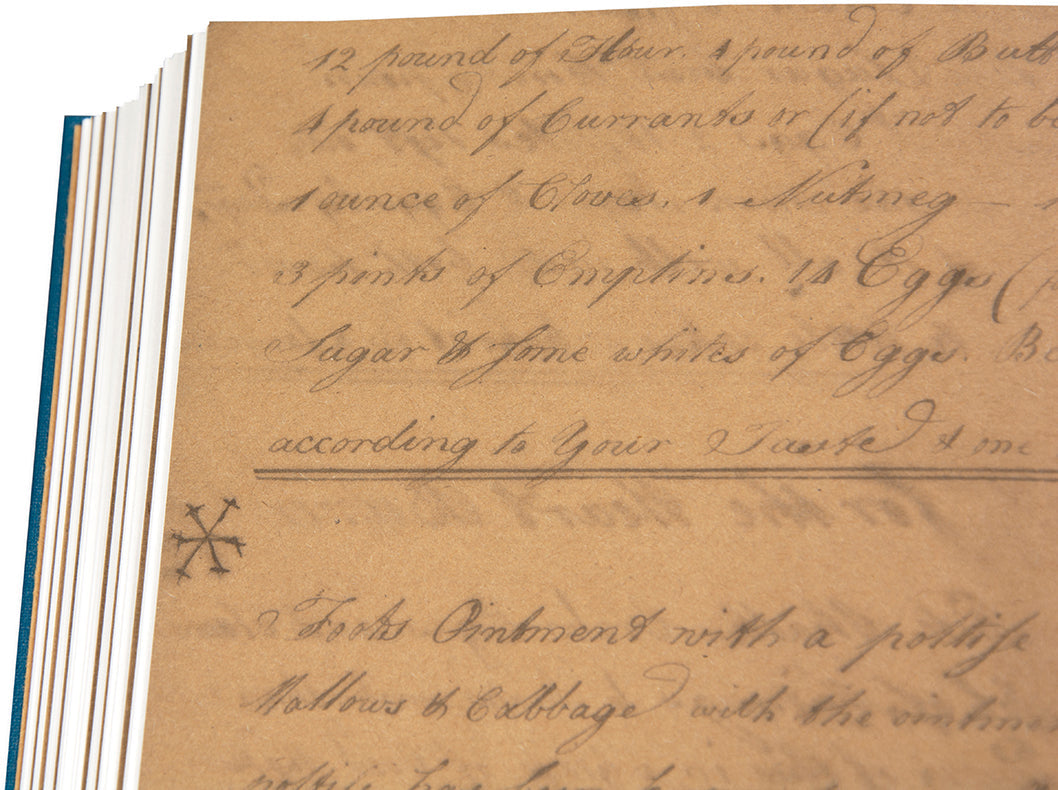 12 pound of Flour. 4 pound of Butt
4 pound of Currants or (if not to be
1 ounce of Cloves. 1 Nutmeg —
3 pints of Emptins. 14 Eggs (
Sugar & some whites of Eggs. Be
according to Your Taste & me
Foots Ointment with a poltise
Mallows & Cabbage with the ointmen
poltise has been